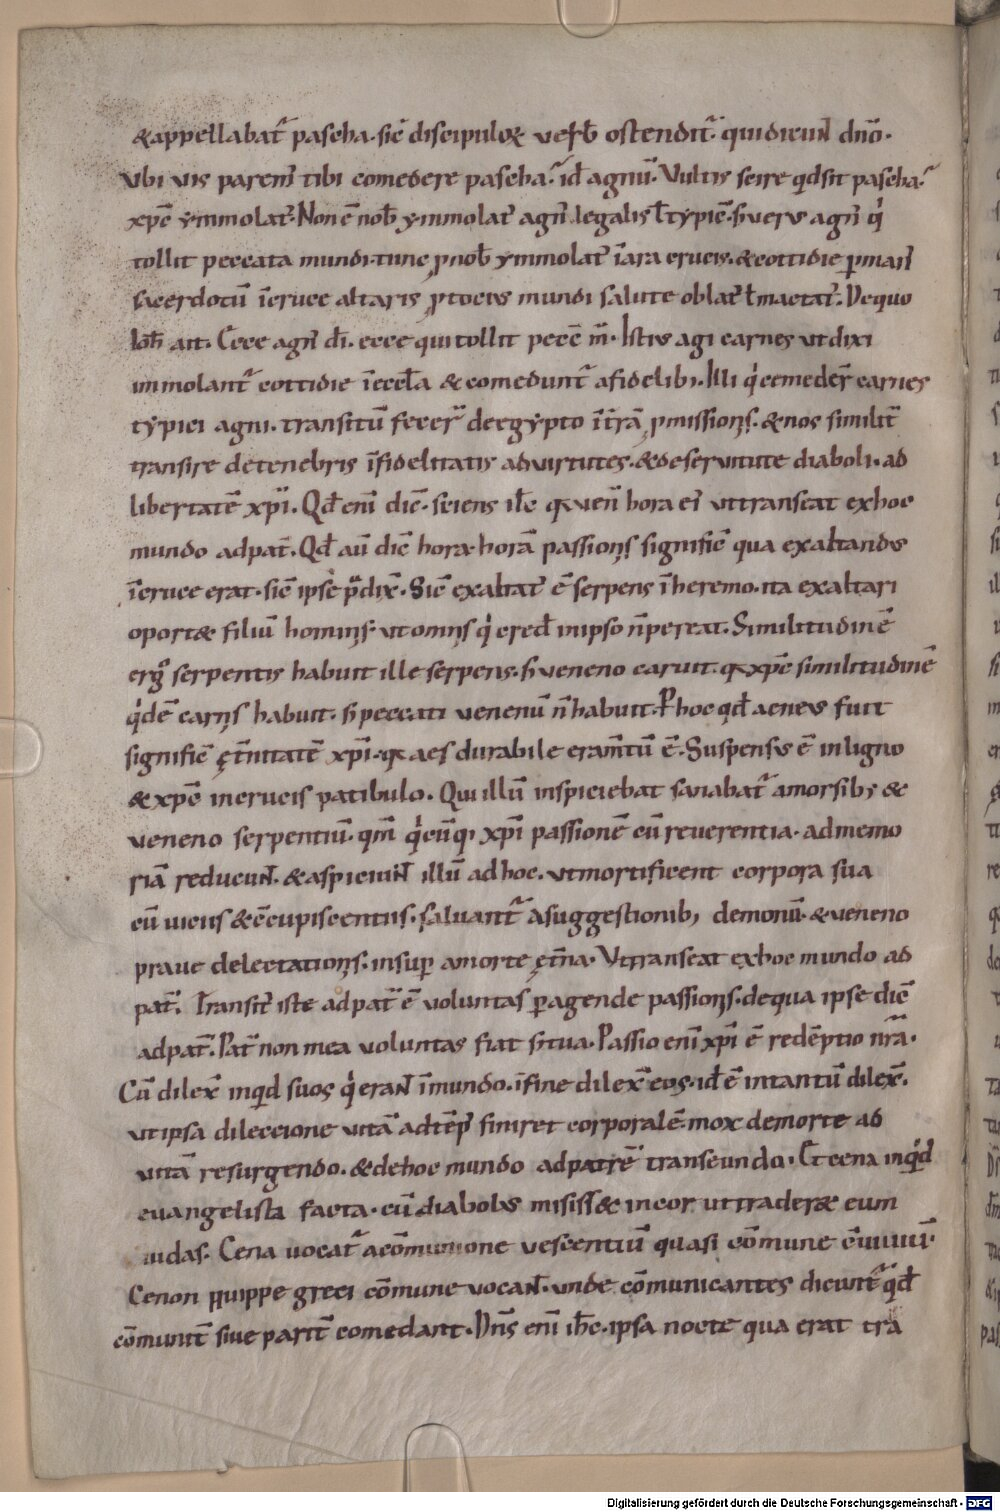 &appellabat̃ pascha. sic̄ discipuloꝝ verb̄ ostendit̃. qui dicun̄ dn̄o.
Vbi vis parem̃ tibi comedere pascha. id̄ agnū. Vultis scire qd̄ sit pascha.
xp̄c ymmolat̃. Non ē nob̄ ymmolat̃ agn̄ legalis ł typic̄. s; verus agn̄ q̇
tollit peccata mundi. tunc ꝓ nob̄ ymmolat̃ ī ara crucis. & cottidie ꝑ man̄
sacerdotū ī cruce altaris ꝓ tocius mundi salute oblat̃ ł mactat̃. De quo
Ioh̄ ait. Ecce agn̄ dī. ecce qui tollit pecc̄ m̄. Istius agi carnes ut dixi
immolant̃ cottidie ī eccłā & comedunt̃ a fidelibꝫ. Illi q̇ comeder̄ carnes
typici agni. transitū fecer̄ de egypto ī t̃rā ꝓmissionis. & nos similit̃
transire de tenebris īfidelitatis ad virtutes. & de servitute diaboli. ad
libertatē xp̄i. Qd̄ enī dic̄. sciens ih̄c qꝛ ven̄ hora ei᷒ ut transeat ex hoc
mundo ad pat̃. Qd̄ aū dic̄ hora. horā passionis signific̄ qua exaltandus
ī cruce erat. sic̄ ipse p̄dix̄. Sic̄ exaltat᷒ ē serpens ī heremo. ita exaltari
oport& filiū hominis. ut omnis q̇ cred̄ in ipso n̄ pereat. Similitudinē
ergo serpentis habuit ille serpens. s; veneno caruit. qꝛ xp̄c similitudinē
q̇dē carnis habuit. s; peccati venenū n̄ habuit. P hoc qd̄ aeneus fuit
signific̄ ęt̃nitatē xp̄i. qꝛ aes durabile eram̃tū ē. Suspensus ē in ligno
& xp̄c in crucis patibulo. Qui illū inspiciebat sanabat̃ a morsibꝫ &
veneno serpentiū. qm̄ q̇cūqꝫ xp̄i passionē cū reverentia. ad memo
riā reducun̄. & aspiciun̄ illū ad hoc. ut mortificent corpora sua
cū viciis & c̄cupiscentiis. salvant̃ a suggestionibꝫ demonū. & veneno
prave delectationis. insup̄ a morte ęt̃na. Vt transeat ex hoc mundo ad
pat̃. Transit᷒ iste ad pat̃ ē voluntas ꝑagende passionis. de qua ipse dic̄
ad pat̃. Pat̃ non mea voluntas fiat s; tua. Passio enī xp̄i ē redēptio nr̄a.
Cū dilex̄ inqd̄ suos q̇ eran̄ ī mundo. ī fine dilex̄ eos. id̄ ē in tantū dilex̄.
ut ipsa dileccione vitā ad tēp᷒ finiret corporalē. mox de morte ad
vitā resurgendo. & de hoc mundo ad patrē transeundo. Et cena inqd̄
euangelista facta. cū diabolus misiss& in cor ut trader& eum
iudas. Cena vocat̃ a cōmunione vescentiū quasi cōmune c̄viviū.
Cenon quippe greci cōmune vocan̄. unde cōmunicantes dicunt̃ qd̄
cōmunit̃ sive parit̃ comedant. Dn̄s enī ih̄c. ipsa nocte qua erat tra
Digitalisierung gefördert durch die Deutsche Forschungsgemeinschaft - DFG